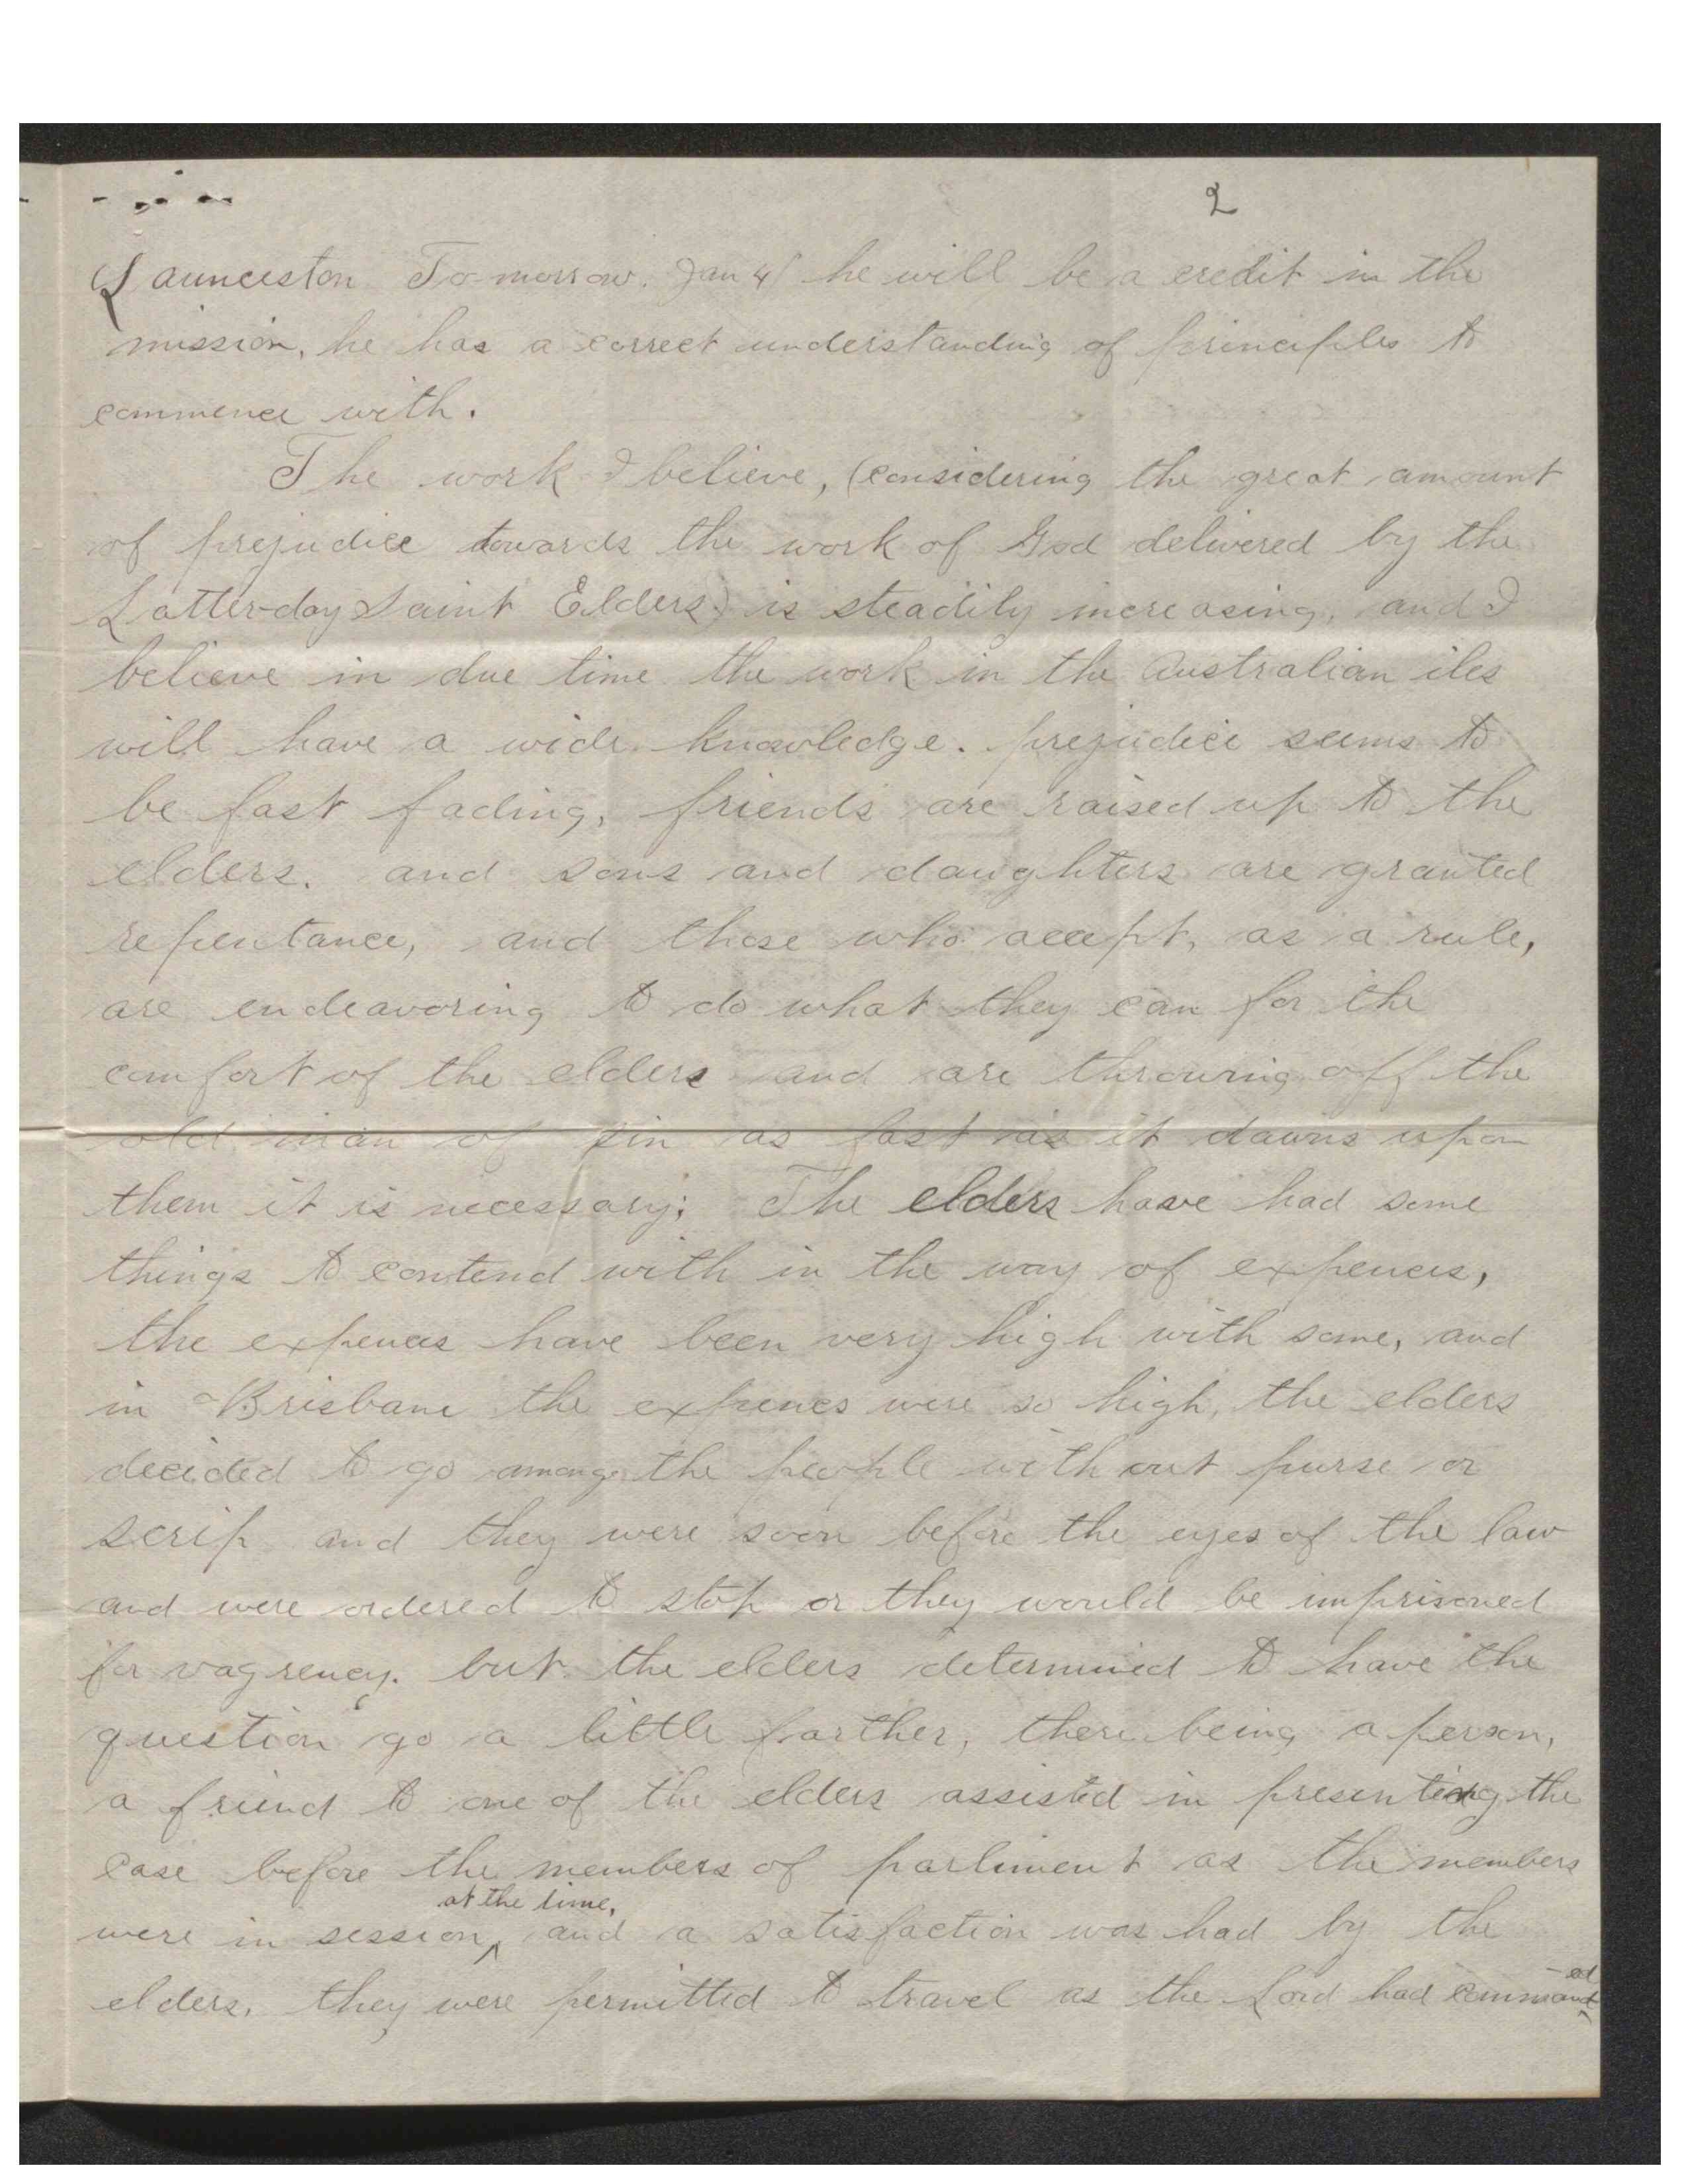 2
Launceston To-morrow. Jan 4/ he will be a credit in the
mission, he has a correct understanding of principles to
commence with.
The work I believe, (considering the great amount
of prejudice towards the work of God delivered by the
Latter-day Saint Elders) is steadily increasing, and I
believe in due time the work in the Australian iles
will have a wide knowledge. prejudice seems to
be fast fading, friends are raised up to the
elders. and sons and daughters are granted
repentance, and those who accept, as a rule,
are endeavoring to do what they can for the
comfort of the elders and are throwing off the
old man of sin as fast as it dawns upon
them it is necessary; The elders have had some
things to contend with in the way of expences,
the expences have been very high with some, and
in Brisbane the expences were so high, the elders
decided to go among the people without purse or
scrip and they were soon before the eyes of the law
and were ordered to stop or they would be imprisoned
for vagrency. but the elders determined to have the
question go a little farther, there being a person,
a friend to one of the elders assisted in presenting the
case before the members of parliment as the members
were in session, at the time, and a satisfaction was had by the
elders, they were permitted to travel as the Lord had commanded